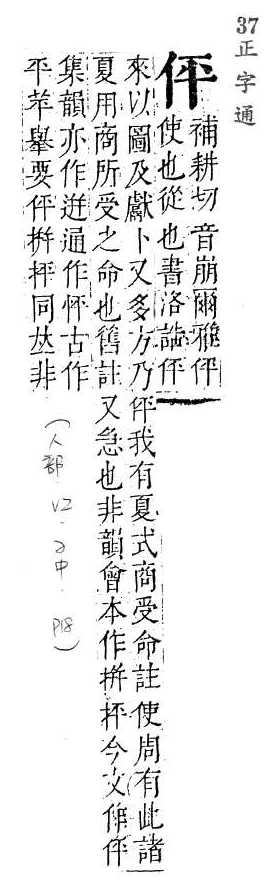 37
正字通
伻
補耕切音崩爾雅伻
使也從也書洛誥伻
來以圖及獻卜又多方乃伻我有夏式商受命註使周有此諸
夏用商所受之命也舊註又急也非韻會本作拼抨今文作伻
集韻亦作逬通作怦古作
平苹舉要伻拼抨同𠀤非
(人部 V2. 子中. P18)